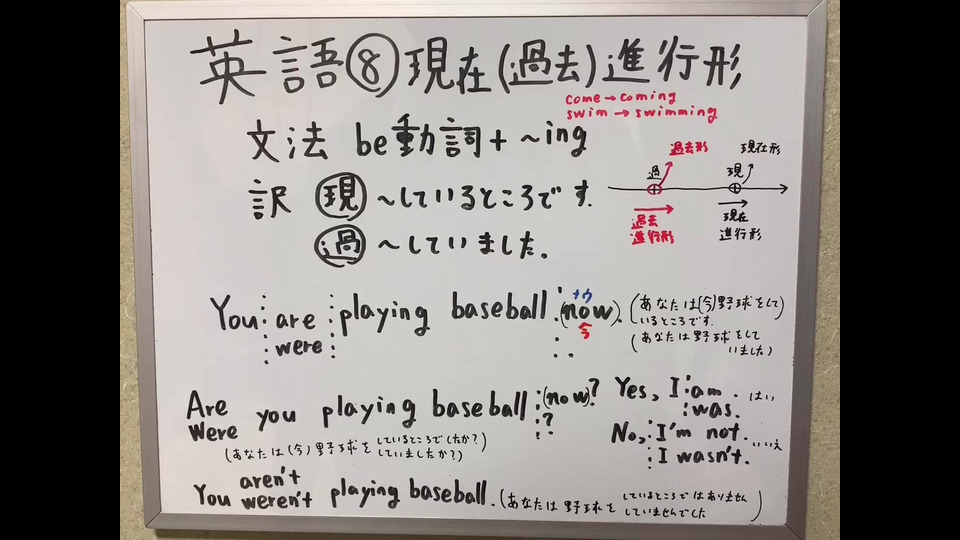 英語⑧現在(過去)進行形
come→coming
swim→swimming
文法 be動詞+~ing
訳 現 ~しているところです.
過 ~していました.
過去形 現在形
過 現
過去進行形 現在進行形
ナウ
You are playing baseball (now).
were
今
(あなたは(今)野球をして
いるところです.
(あなたは野球をして
いました)
Are you playing baseball (now)?
Were ?
(あなたは(今)野球を しているところでしたか?
していましたか?)
Yes, I am. はい
was.
No, I'm not. いいえ
I wasn't.
You aren't playing baseball.
weren't
(あなたは野球を しているところではありません
していませんでした)